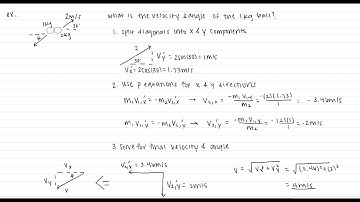 ex.
2m/s
1kg
30°
2kg
What is the velocity & angle of the 1kg ball?
1. Split diagonals into x & y components
2
30°
Vy' = 2sin(30) = 1m/s
Vx' = 2cos(30) = 1.73m/s
2. Use p equations for x & y directions
m₁V₁,x' = -m₂V₂,x' → V₂,x' = -m₁V₁,x / m₂ = -(2)(1.73) / 1 = -3.46m/s
m₁V₁,y' = -m₂V₂,y' → V₂,y' = -m₁V₁,y / m₂ = -(2)(1) / 1 = -2m/s
3. Solve for final velocity & angle
V₂,x' = 3.46m/s
V₂,y' = 2m/s
Vx
Vy
V
<=
V = √Vx² + Vy² = √(3.46)² + (2)²
= 4m/s